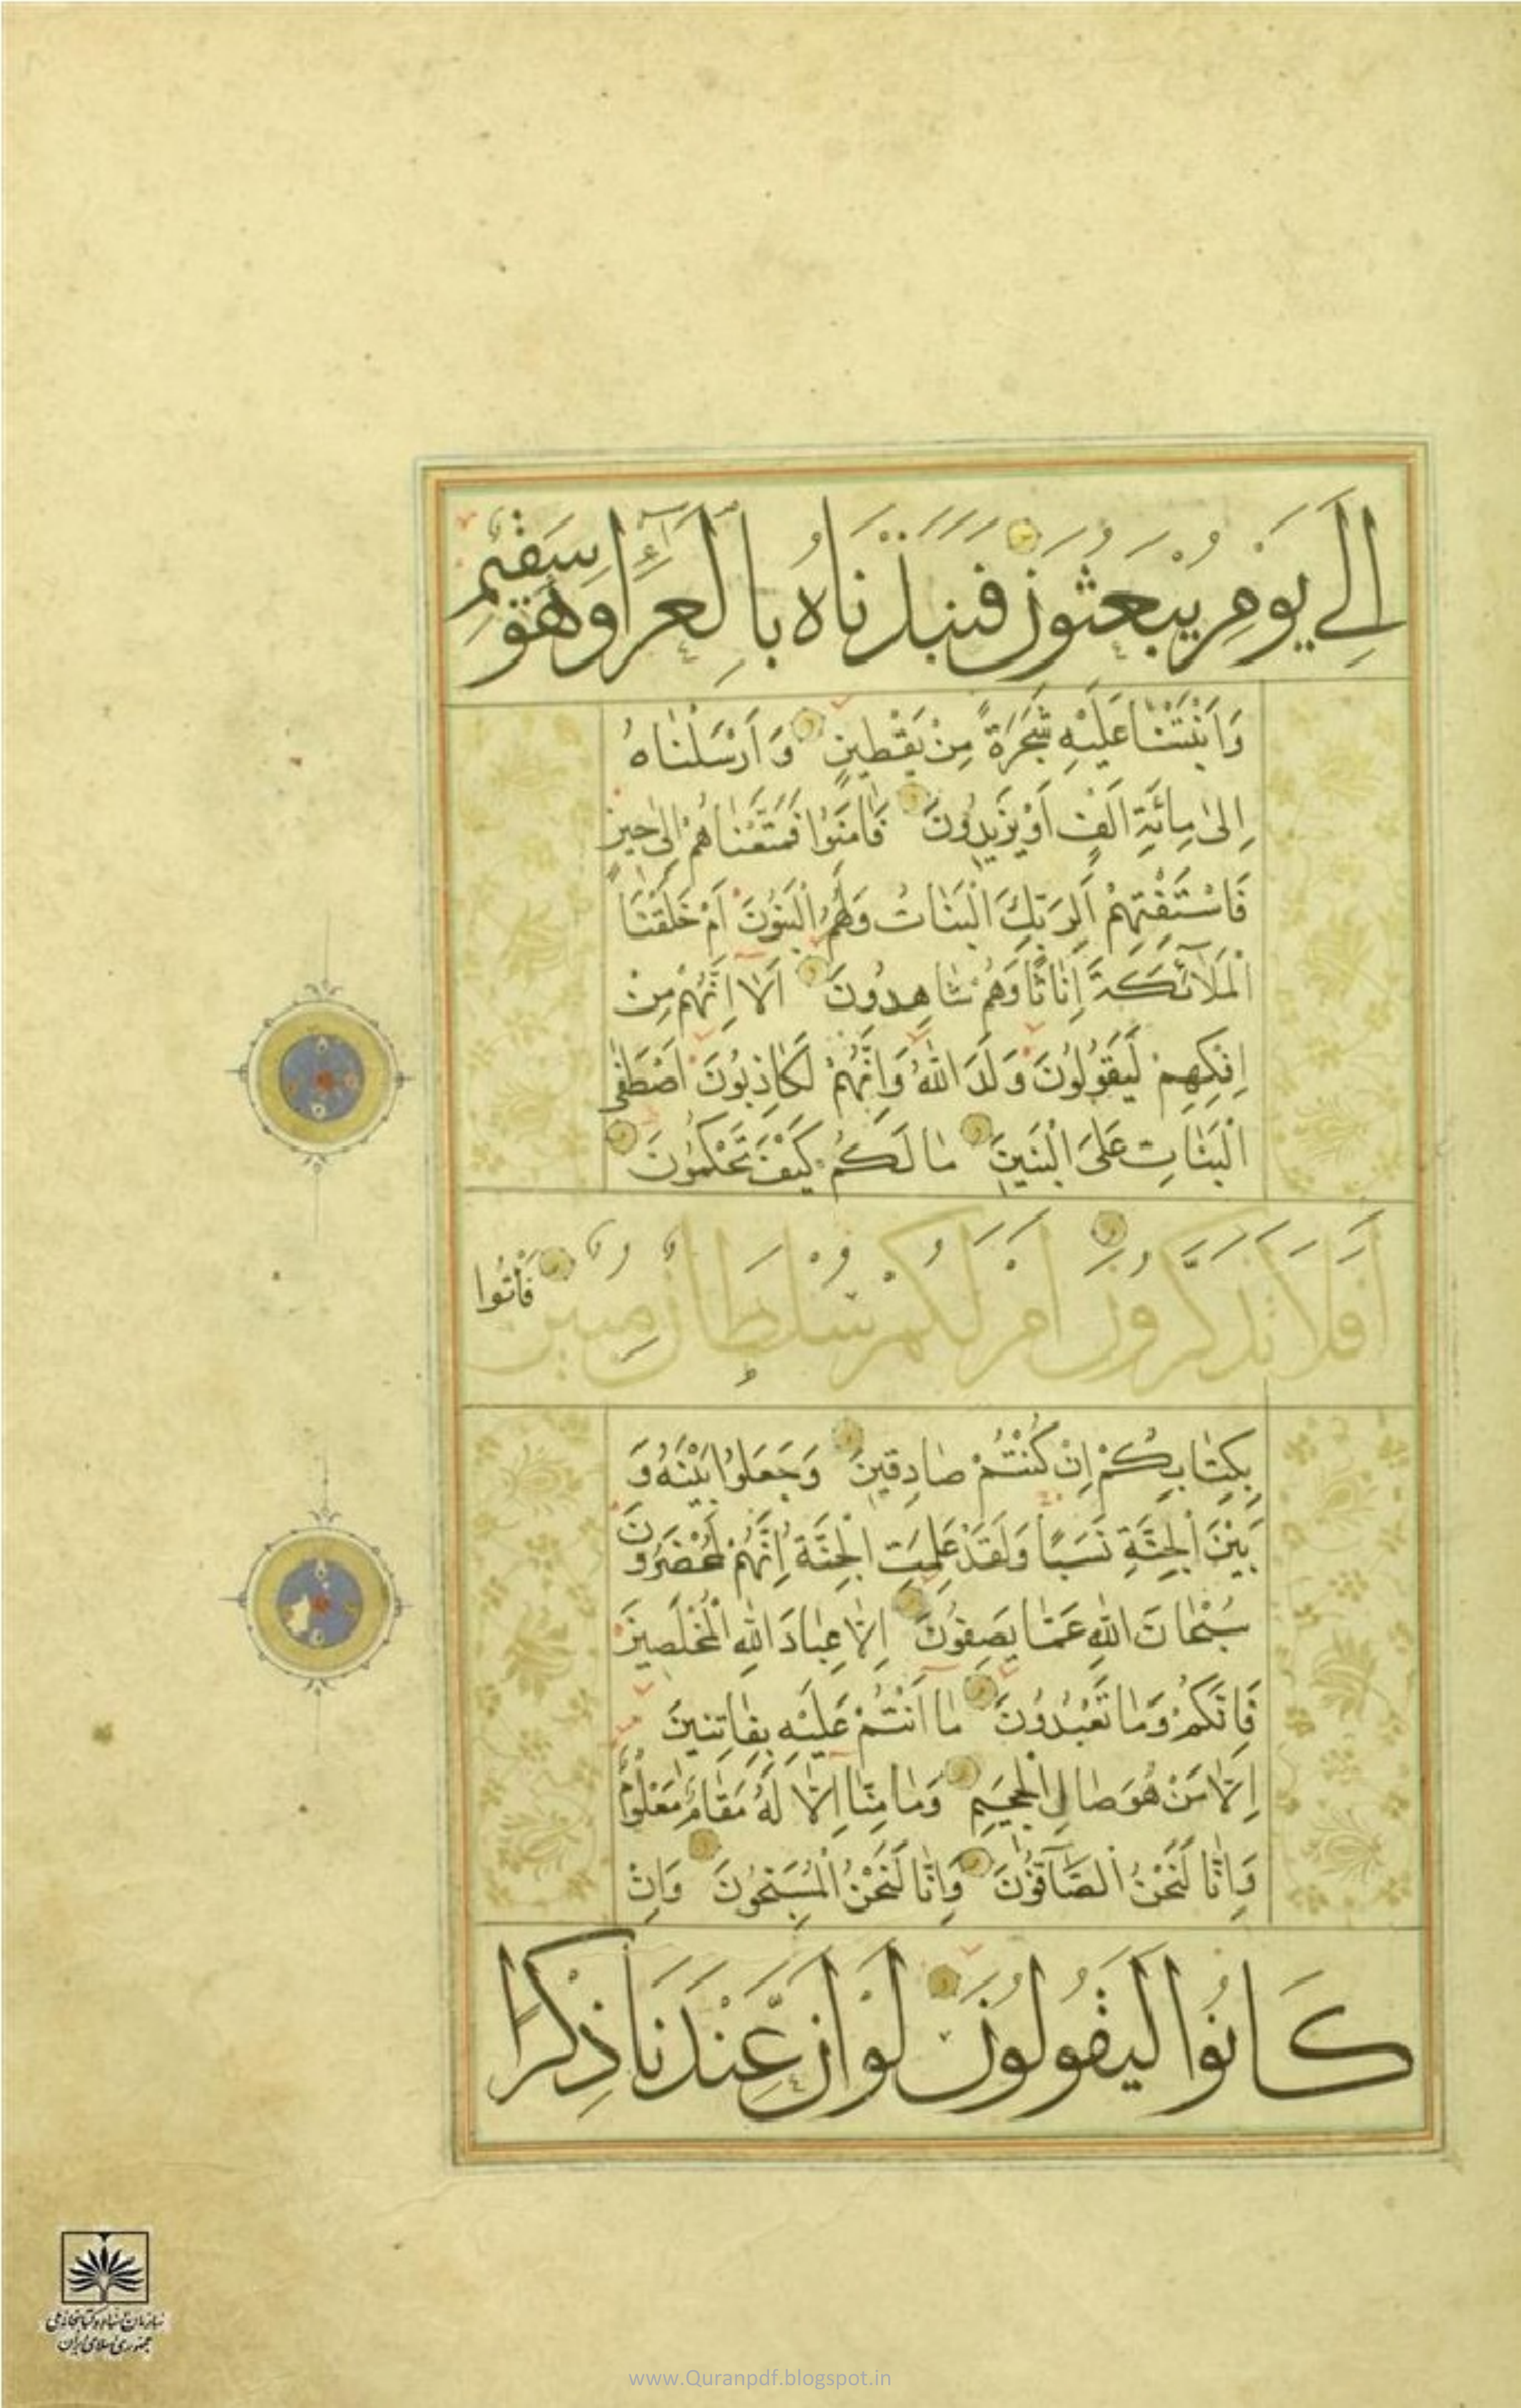 اِلٰی يَوْمِ يُبْعَثُونَ فَنَبَذْنَاهُ بِالْعَرَآءِ وَهُوَ سَقِيمٌ
وَاَنْبَتْنَا عَلَيْهِ شَجَرَةً مِنْ يَقْطِينٍ وَ اَرْسَلْنَاهُ
اِلىٰ مِائَةِ اَلْفٍ اَوْ يَزِيدُونَ فَاٰمَنُوا فَمَتَّعْنَاهُمْ اِلىٰ حِينٍ
فَاسْتَفْتِهِمْ اَلِرَبِّكَ الْبَنَاتُ وَلَهُمُ الْبَنُونَ اَمْ خَلَقْنَا
الْمَلَآئِكَةَ اِنَاثًا وَهُمْ شَاهِدُونَ اَلَا اِنَّهُمْ مِنْ
اِفْكِهِمْ لَيَقُولُونَ وَلَدَ اللّٰهُ وَاِنَّهُمْ لَكَاذِبُونَ اَصْطَفَى
الْبَنَاتِ عَلَى الْبَنِينَ مَا لَكُمْ كَيْفَ تَحْكُمُونَ
اَفَلَا تَذَكَّرُونَ اَمْ لَكُمْ سُلْطَانٌ مُبِينٌ فَأْتُوا
بِكِتَابِكُمْ اِنْ كُنْتُمْ صَادِقِينَ وَجَعَلُوا بَيْنَهُ وَ
بَيْنَ الْجِنَّةِ نَسَبًا وَلَقَدْ عَلِمَتِ الْجِنَّةُ اِنَّهُمْ لَمُحْضَرُونَ
سُبْحَانَ اللّٰهِ عَمَّا يَصِفُونَ اِلَّا عِبَادَ اللّٰهِ الْمُخْلَصِينَ
فَاِنَّكُمْ وَمَا تَعْبُدُونَ مَا اَنْتُمْ عَلَيْهِ بِفَاتِنِينَ
اِلَّا مَنْ هُوَ صَالِ الْجَحِيمِ وَمَا مِنَّا اِلَّا لَهُ مَقَامٌ مَعْلُومٌ
وَاِنَّا لَنَحْنُ الصَّآفُّونَ وَاِنَّا لَنَحْنُ الْمُسَبِّحُونَ وَاِنْ
كَانُوا لَيَقُولُونَ لَوْ اَنَّ عِنْدَنَا ذِكْرًا
سازمان اسناد و کتابخانه ملی
جمهوری اسلامی ایران
www.Quranpdf.blogspot.in